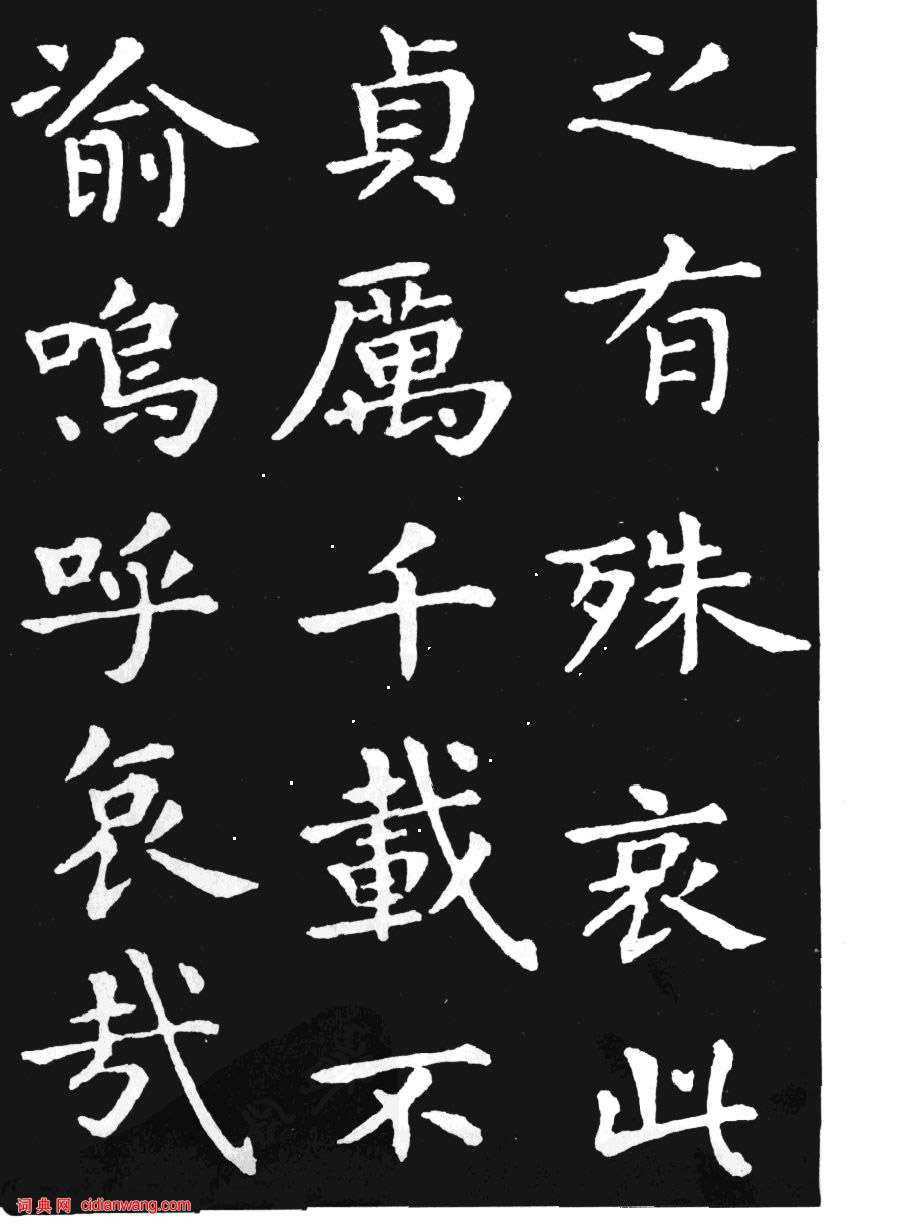 之有殊哀此
貞厲千載不
渝嗚呼哀哉
词典网 cidianwang.com